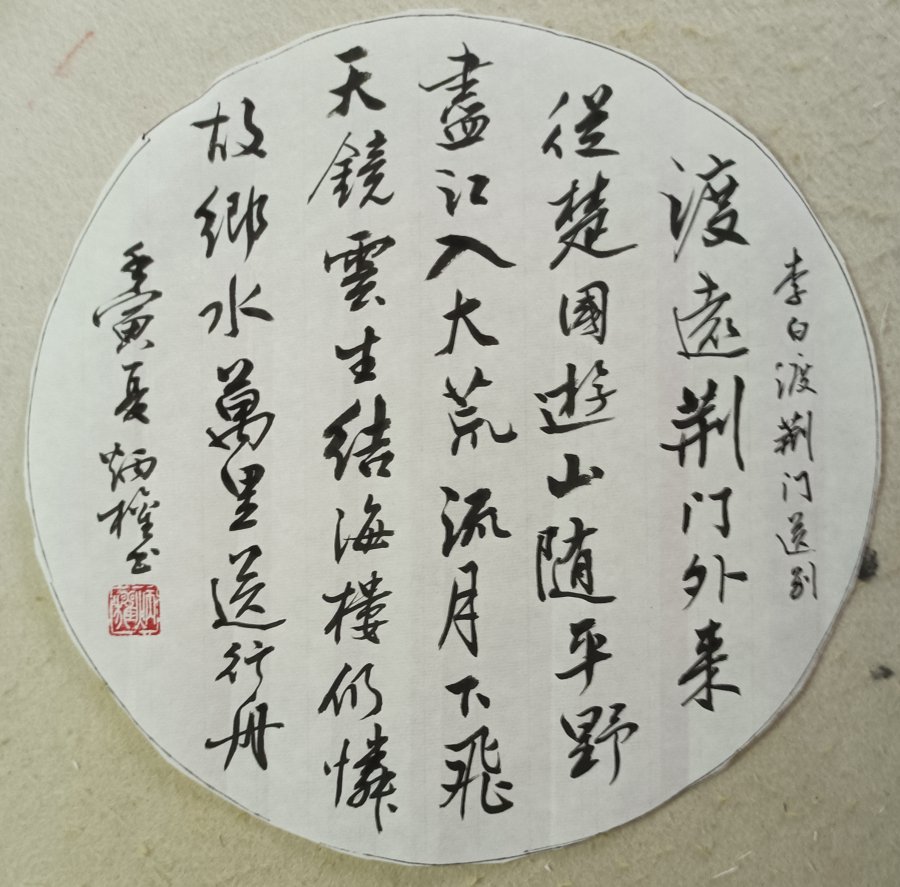 李白渡荆门送别
渡遠荆门外来
從楚國遊山随平野
盡江入大荒流月下飛
天鏡雲生結海樓仍憐
故鄉水萬里送行舟
壬寅夏炳權书